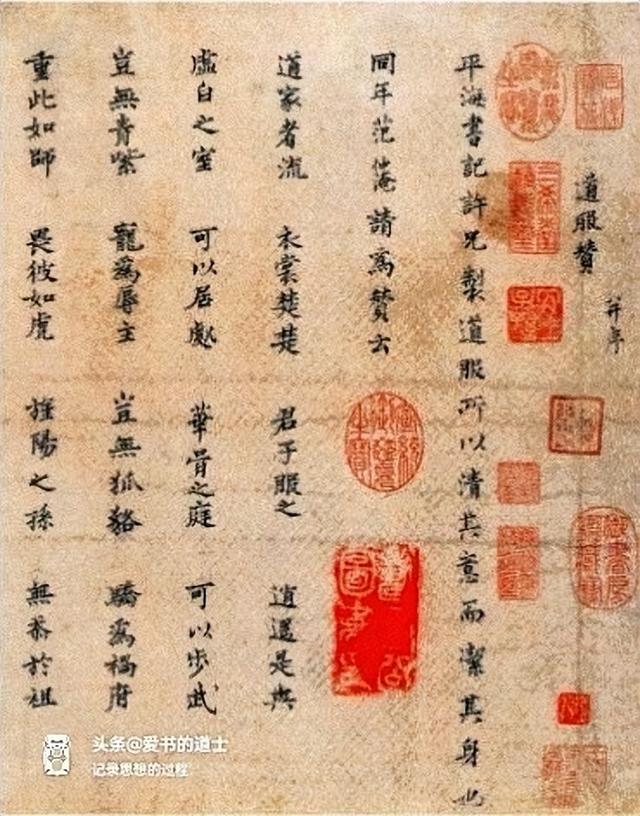 道服贊 并序
平海書記許兄製道服所以清其意而潔其身也
同年范仲淹請爲贊云
道家者流 衣裳楚楚 君子服之 逍遥是與
虛白之室 可以居處 華胥之庭 可以步武
豈無青紫 寵爲辱主 豈無狐貉 驕爲禍府
重此如師 畏彼如虎 旌陽之孫 無忝於祖
头条@爱书的道士
记录思想的过程